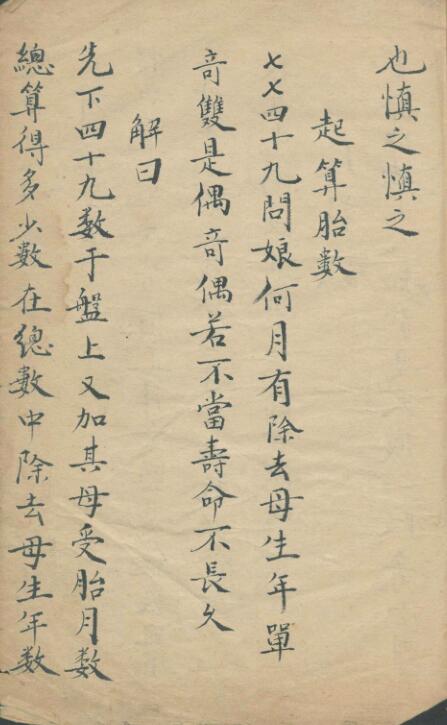 也慎之慎之
起算胎數
七七四十九問娘何月有除去母生年單
奇雙是偶奇偶若不當壽命不長久
解曰
先下四十九数于盤上又加其母受胎月数
總算得多少數在總數中除去母生年数